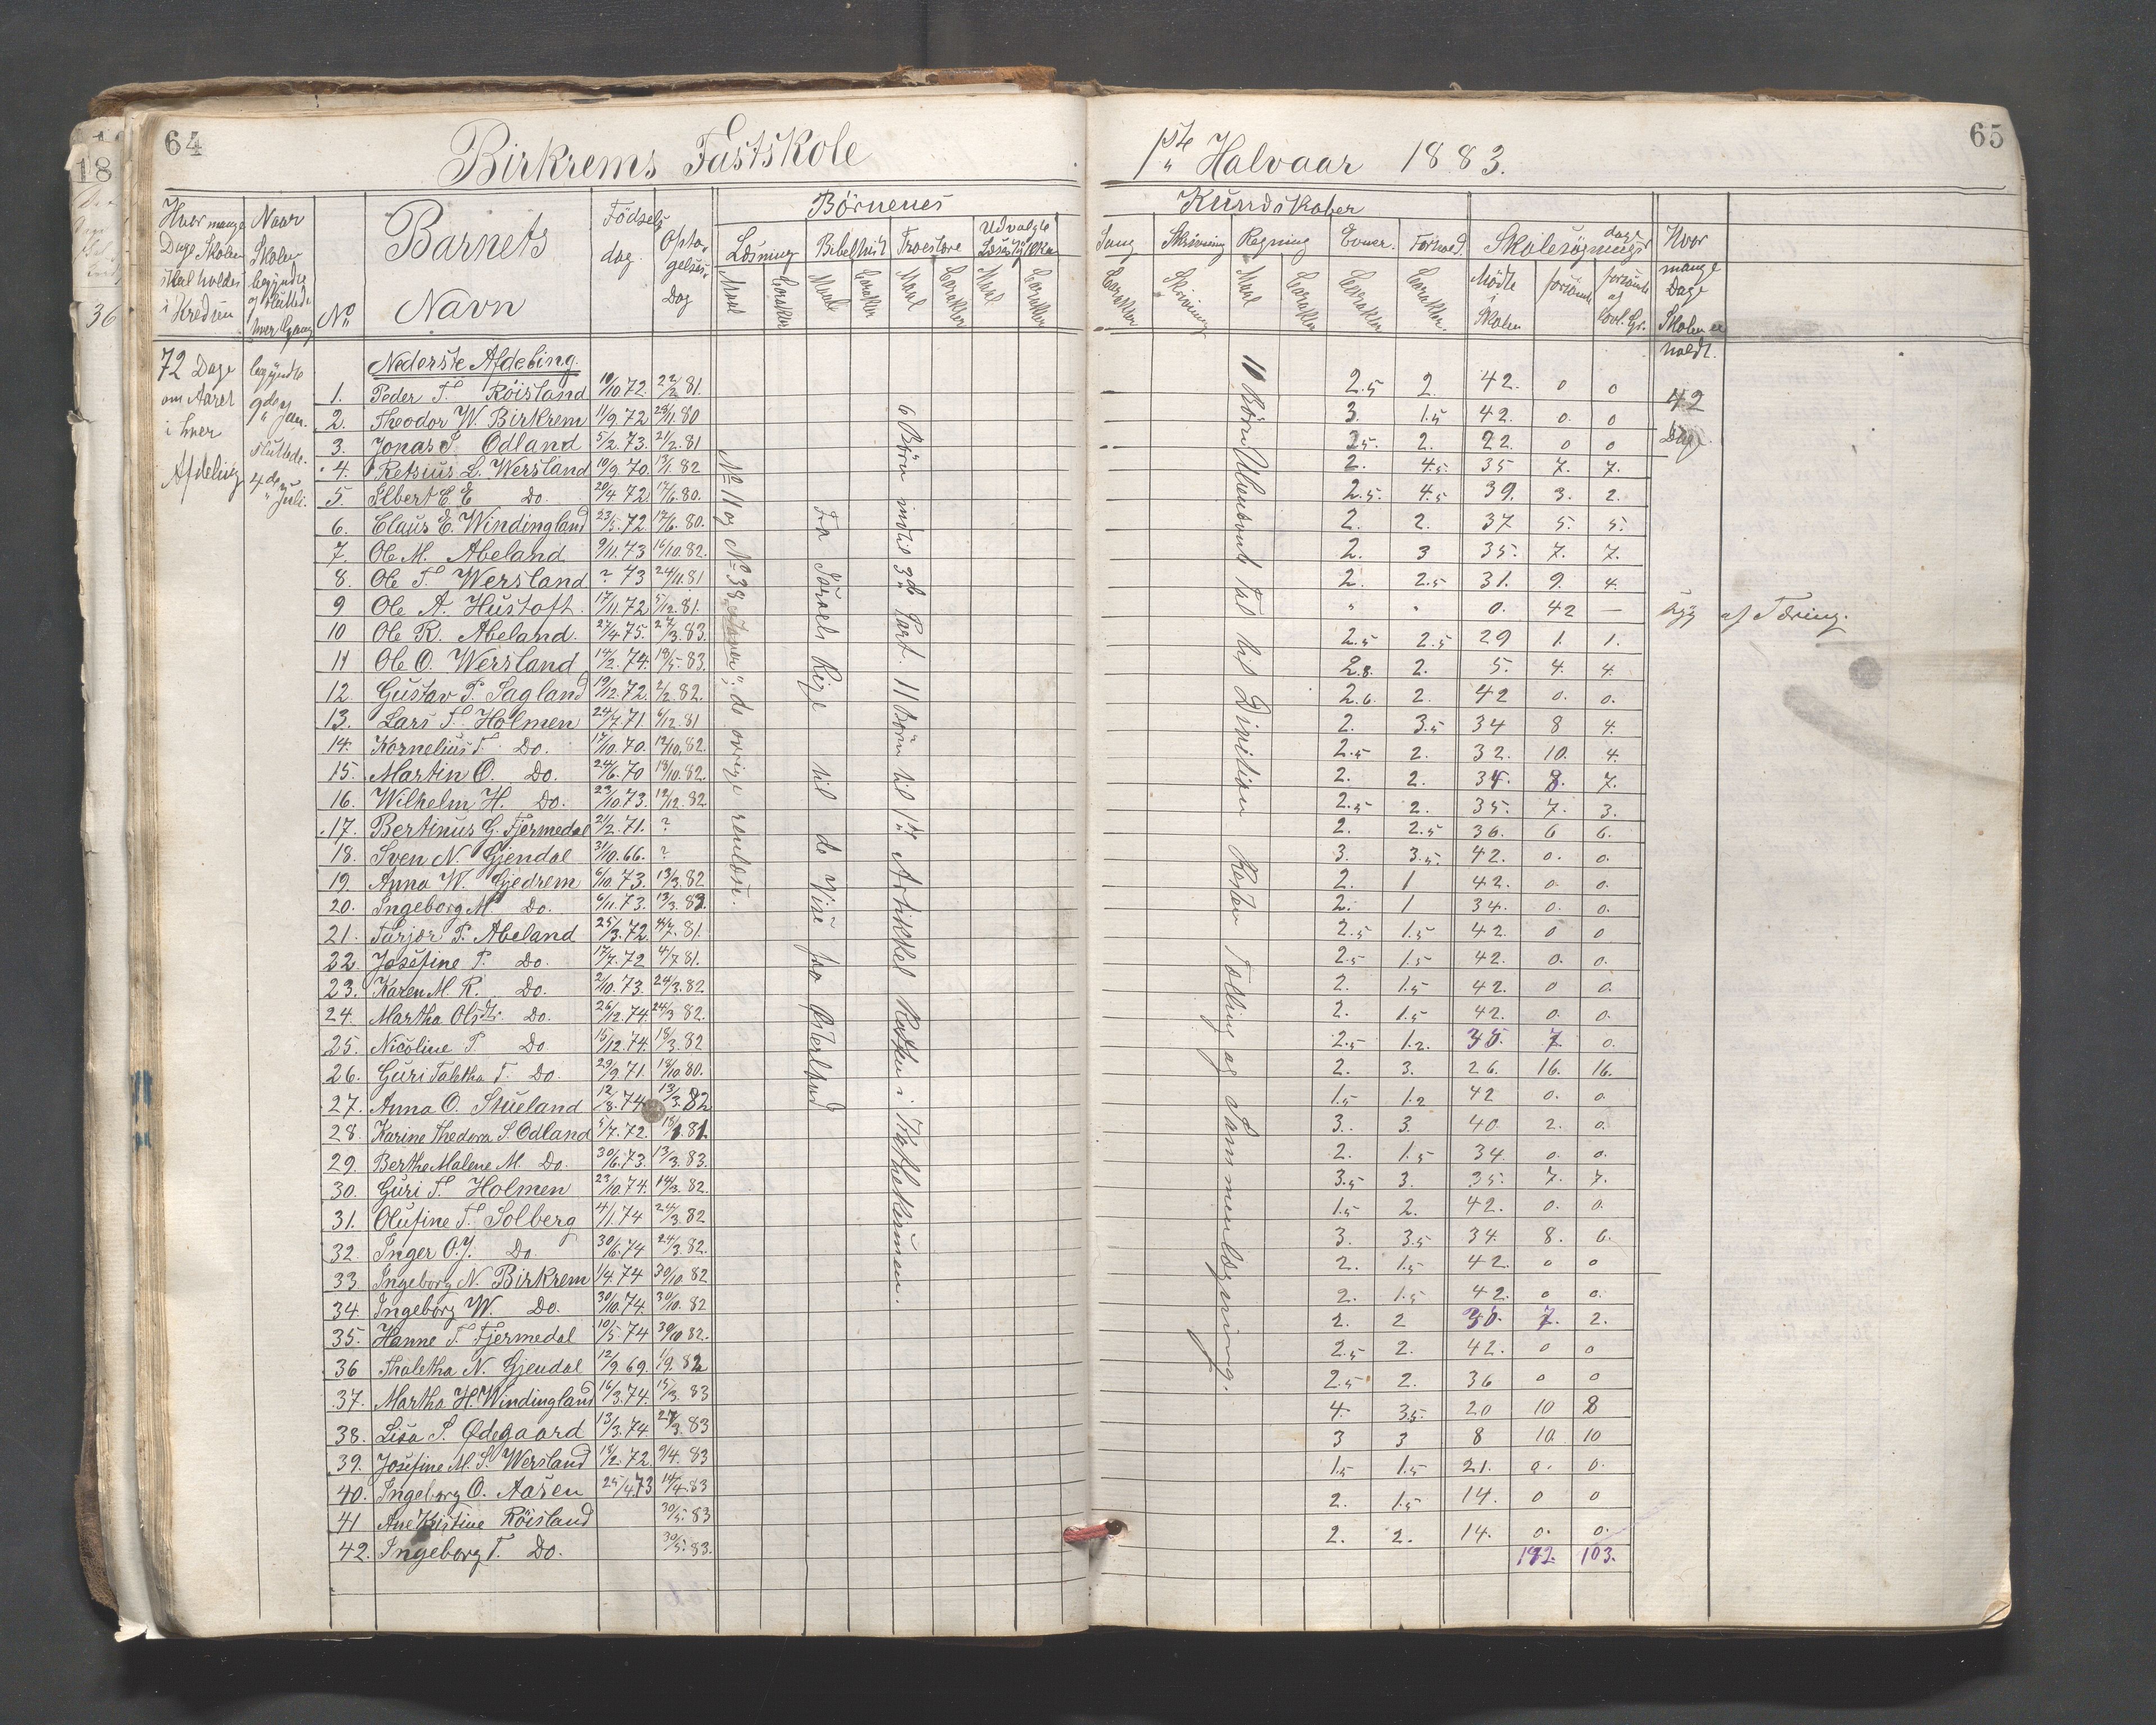 64
Birkrems Fastskole
1ste Halvaar 1883.
65
Hvor mange Dage Skolen skal holdes i Kredsen
Naar Skolen begyndte og sluttede hver Gang
No
Barnets Navn
Fødselsdag
Optagelses Dag
Børnenes Kundskaber
Læsning Bibelhist Troeslære Udvalgte Læsestykker
Sang Skrivning Regning Evner. Forhold. Skolesøgnings dage
Maal Carakter Maal Carakter Maal Carakter Maal Carakter
Carakter Skrivning Maal Carakter Carakter Carakter.
Mødte i Skolen forsømte forsømte af lovl. Gr.
Hvor mange Dage Skolen er holdt.
72 Dage om Aaret i hver Afdeling
begyndte 9de Jan. sluttede 4de Juli.
Nederste Afdeling.
42 Dage.
No 11 og No 38 "staver"; de øvrige renlæse.
Fra Israels Rige til de Vise fra Østerland
6 Børn indtil 3die Part. 11 Børn til 1ste Artikkel Resten i Kathekismen.
10 Børn Ubenævnte Tal til Division Resten Tælling og Sammenlægning.
1. Peder T. Röisland 10/10 72. 22/2 81. 2.5 2. 42. 0 0
2. Theodor W. Birkrem 11/9 72 29/11 80 3. 1.5 42. 0. 0
3. Jonas T. Odland 5/2. 73. 21/2. 81 2.5. 2. 22. 0 0
4. Retsius L. Wersland 10/9. 70. 13/1. 82 2. 4.5. 35 7. 7.
5. Elbert E. E Do. 20/4 72. 17/6. 80. 2.5. 4.5 39. 3. 2.
6. Claus E. Windingland 23/5. 72. 17/6. 80. 2. 2. 37 5. 5.
7. Ole M. Abeland 9/11. 73 16/10. 82. 2. 3 35. 7. 7.
8. Ole T. Wersland ? 73 24/11. 81 2. 2.5 31. 9. 4.
9 Ole A. Hustoft. 17/11. 72. 5/12. 81. " " 0. 42 — syg af Tæring.
10 Ole R. Abeland. 27/4 75. 27/3. 83. 2.5 2.5 29 1. 1.
11 Ole O. Wersland 14/2. 74. 18/5. 83. 2.8. 2. 5. 4. 4.
12. Gustav P. Sagland 19/12. 72. 2/2. 82. 2.6. 2. 42 0. 0.
13. Lars T. Holmen 24/7. 71. 6/12. 81 2. 3.5 34 8 4.
14. Kornelius T. Do. 17/10. 70. 19/10. 82. 2.5 2. 32. 10. 4.
15. Martin O. Do. 24/6. 70 18/10. 82. 2. 2. 34. 8. 7.
16. Wilhelm H. Do. 23/10. 73. 12/12. 82 2.5 2. 35. 7. 3.
17. Bertinus G. Fjermedal 21/2. 71. ? 2. 2.5 36. 6 6.
18. Sven N. Gjendal 31/10. 66. ? 3. 3.5. 42. 0. 0.
19. Anna W. Gjedrem 6/10. 73. 13/3. 82 2. 1 42. 0. 0.
20. Ingeborg M. Do. 6/11. 73. 13/3. 82. 2. 1 34. 0. 0.
21. Tarjer P. Abeland 25/3. 72. 4/7. 81. 2.5 1.5 42. 0 0
22. Josefine P. Do. 17/7. 72 4/7 81. 2.5 1.5 42. 0. 0.
23. Karen M. R. Do. 2/10. 73. 24/3. 82 2. 1.5 42. 0 0.
24. Martha Olsdt. Do. 26/12. 74. 24/3 82. 2. 1.5 42. 0. 0.
25. Nicoline P. Do 15/12. 74. 18/3. 82 2.5 1.2. 35. 7. 0.
26. Guri Taletha T. Do. 29/9. 71. 18/10. 80. 2. 3. 26. 16. 16.
27. Anna O. Stueland 12/8. 74. 13/3. 82 1.5 1.2 42 0. 0
28. Karine Thedora S. Odland 5/7. 72. 18/1. 81. 3. 3. 40. 2. 0.
29. Berthe Malene M. Do. 30/6. 73. 13/3. 83. 2. 1.5 34. 0. 0.
30. Guri T. Holmen 23/10. 74. 14/3. 82. 3.5 3. 35. 7. 7.
31. Olufine T. Solberg 4/1. 74 24/3. 82 1.5 2. 42. 0. 0.
32. Inger O. J. Do. 30/6. 74 24/3. 82. 3. 3.5 34. 8. 6.
33. Ingeborg N. Birkrem 1/4. 74 30/10. 82 2. 1.5 42. 0 0
34. Ingeborg W. Do. 30/10. 74. 30/10. 82 2. 1.5 42. 0 0.
35. Hanne T. Fjermedal 10/5. 74 30/10 82. 2. 2 35. 7. 2.
36 Thaletha N. Gjendal 12/9. 69. 1/9. 82 2.5 2. 42. 0 0
37. Martha H. Windingland 16/3. 74. 15/3. 83 2.5 2. 36 0 0
38. Lisa S. Ødegaard 13/3. 74. 27/3. 83 4. 3.5. 20 10 8
39. Josefine M. S. Wersland 18/2. 72. 9/4. 83 3 3 8 10. 10
40. Ingeborg O. Aasen 25/4. 73 14/4. 83 1.5 1.5 21. 0. 0.
41 Ane Kristine Röisland 30/5. 83 2. 1.5 14. 0 0
42. Ingeborg T. Do. 30/5. 83. 2. 2. 14. 0. 0.
192. 103.
18
36